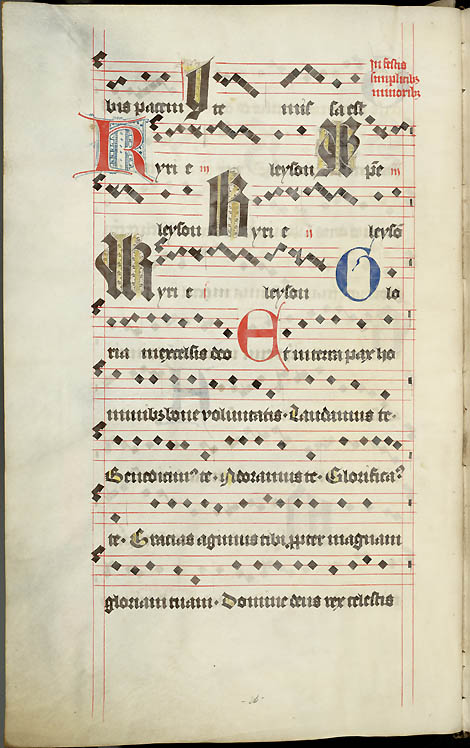 In festis
simplicibz
minoribz
bis pacem Ite mis sa est
Kyrie eleyson Kyrie
leyson Kyrie leyso
Kyrie leyson Glo
ria in excelsis deo Et in terra pax ho
minibz bone voluntatis. Laudamus te.
Benedicim⁹ te. Adoramus te. Glorifica⁹
te. Gracias agimus tibi ꝓpter magnam
gloriam tuam. Domine deus rex celestis